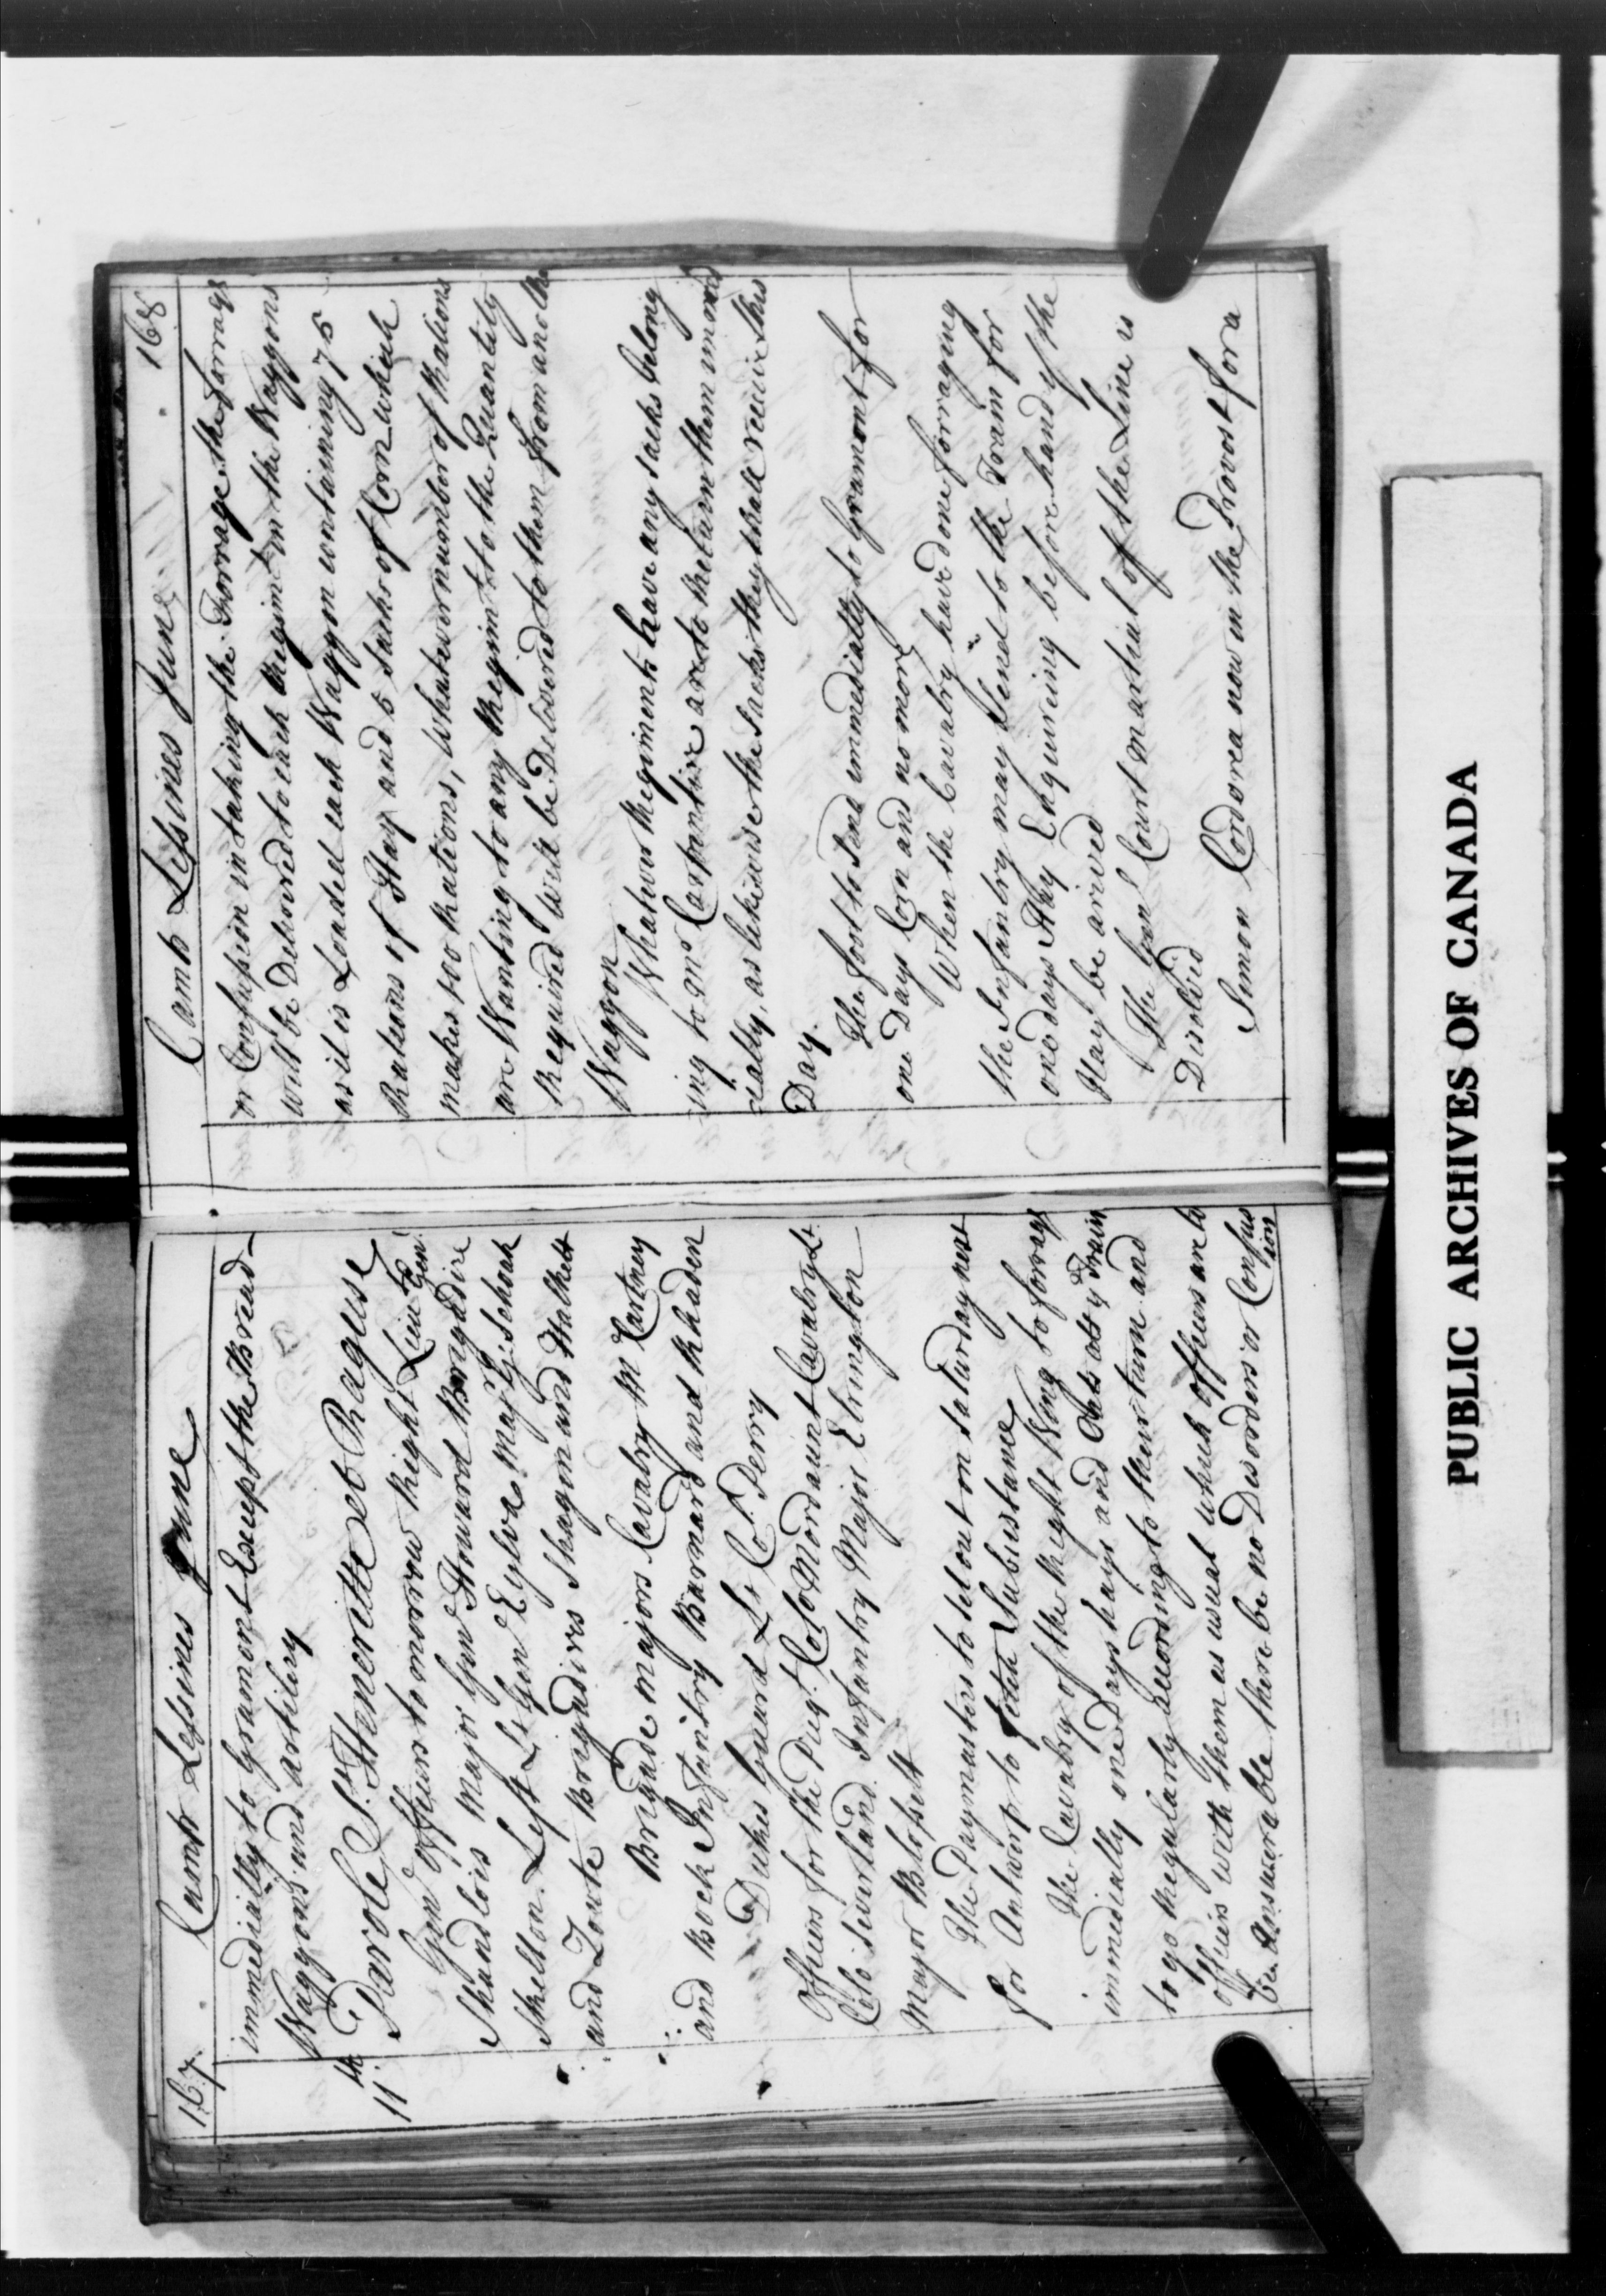 167. Camp Lessines June
immediatly to Gramont Except the Bread
Waggons and artilery
11th Parole St. Heneritte et Raguse
Genl officers to morrow Right Lieut Genl
Major Genl Howard Brigadire
Skelton Left Lt Genl Major G: Schonk
and Brigadires and Halkett
Brigade majors Cavalry Mc Cartney
and Bock Infantry Barnard and Rhaden
Dukes Guard Lt Col. Perry
Officers for the Piqt. Colo Mordaunt Cavalry Lt
Colo Infantry Major Elrington
Major Blossett
The Paymasters to set out on Saturday next
for Antwerp to fetch Subsistance
The Cavalry of the Right Wing to forrage
immedially one Days hays and Oats at ye Train
to go Regularly according to their turn and
officers with them as usual which officers are to
be Answerable there be no Disorders or Confus
ion
Camp Lessines June 168
or Confusion in taking the Forrage the forrage
will be Delivered to each Regimt in the Waggons
as it is Loaded each Waggon containing 75
Rations of Hay and 5 Sacks of Corn which
makes 100 Rations, whatever number of Rations
are Wanting to any Regimt to the Quantity
Required will be Delivered to them from anothe
Waggon
Whatever Regiments have any sacks belong
ing to Mrs Carpantire are to Return them immed
ieatly, as likewise the Sacks they shall receive this
Day.
The foot to send immediatly to Gramont for
one Days Corn and no more
When the Cavalry have done forraging
the Infantry may send to the Train for
one days Hay Enquireing before hand if the
Hay be arived
The Genl Court martial of the Line is
Disolved
Simon Cordorea now in the Provost for a
PUBLIC ARCHIVES OF CANADA